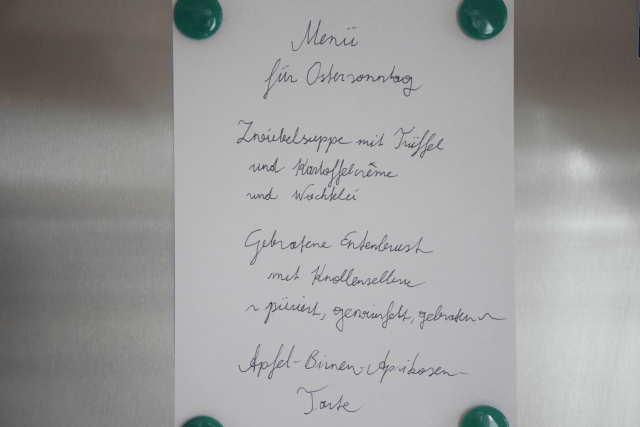 Menü
für Ostersonntag
Zwiebelsuppe mit Trüffel
und Kartoffelcrème
und Wachtelei
Gebratene Entenbrust
mit Knollensellerie
~ püriert, gewürfelt, gebraten ~
Apfel-Birnen-Aprikosen-
Tarte